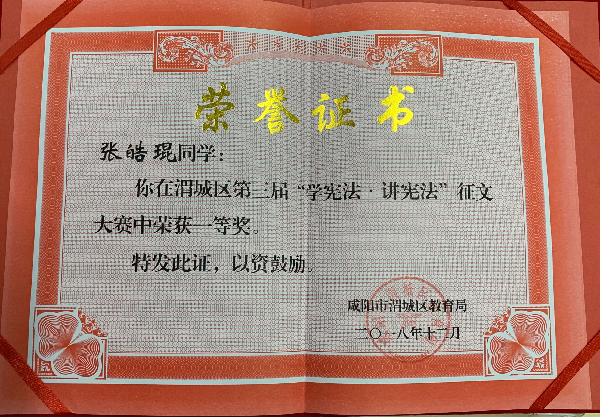 荣誉证书
张皓琨同学：
你在渭城区第三届“学宪法·讲宪法”征文
大赛中荣获一等奖。
特发此证，以资鼓励。
咸阳市渭城区教育局
二〇一八年十二月